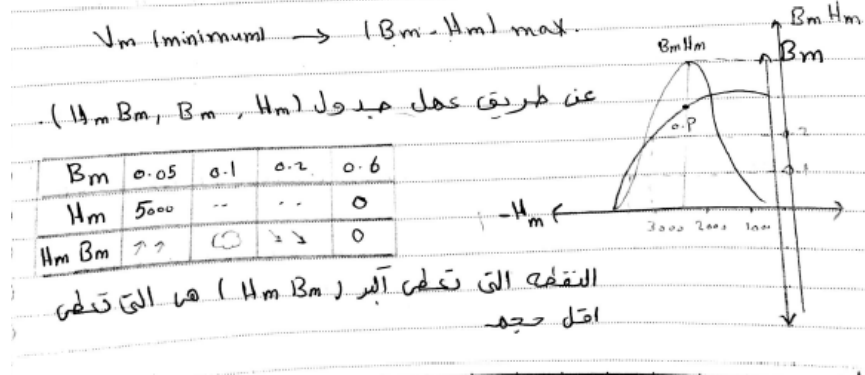 Vm (minimum) → (Bm - Hm) max.
عن طريق عمل جدول (Hm Bm, Bm, Hm).
Bm 0.05 0.1 0.2 0.6
Hm 5000 -- .. 0
Hm Bm ↑↑ ↓↓ 0
النقطه التى تعطى أكبر (Hm Bm) هى التى تعطى
اقل حجم
Bm Hm
Bm Hm
Bm
o.p
2
0.1
-Hm
3000 2000 1000